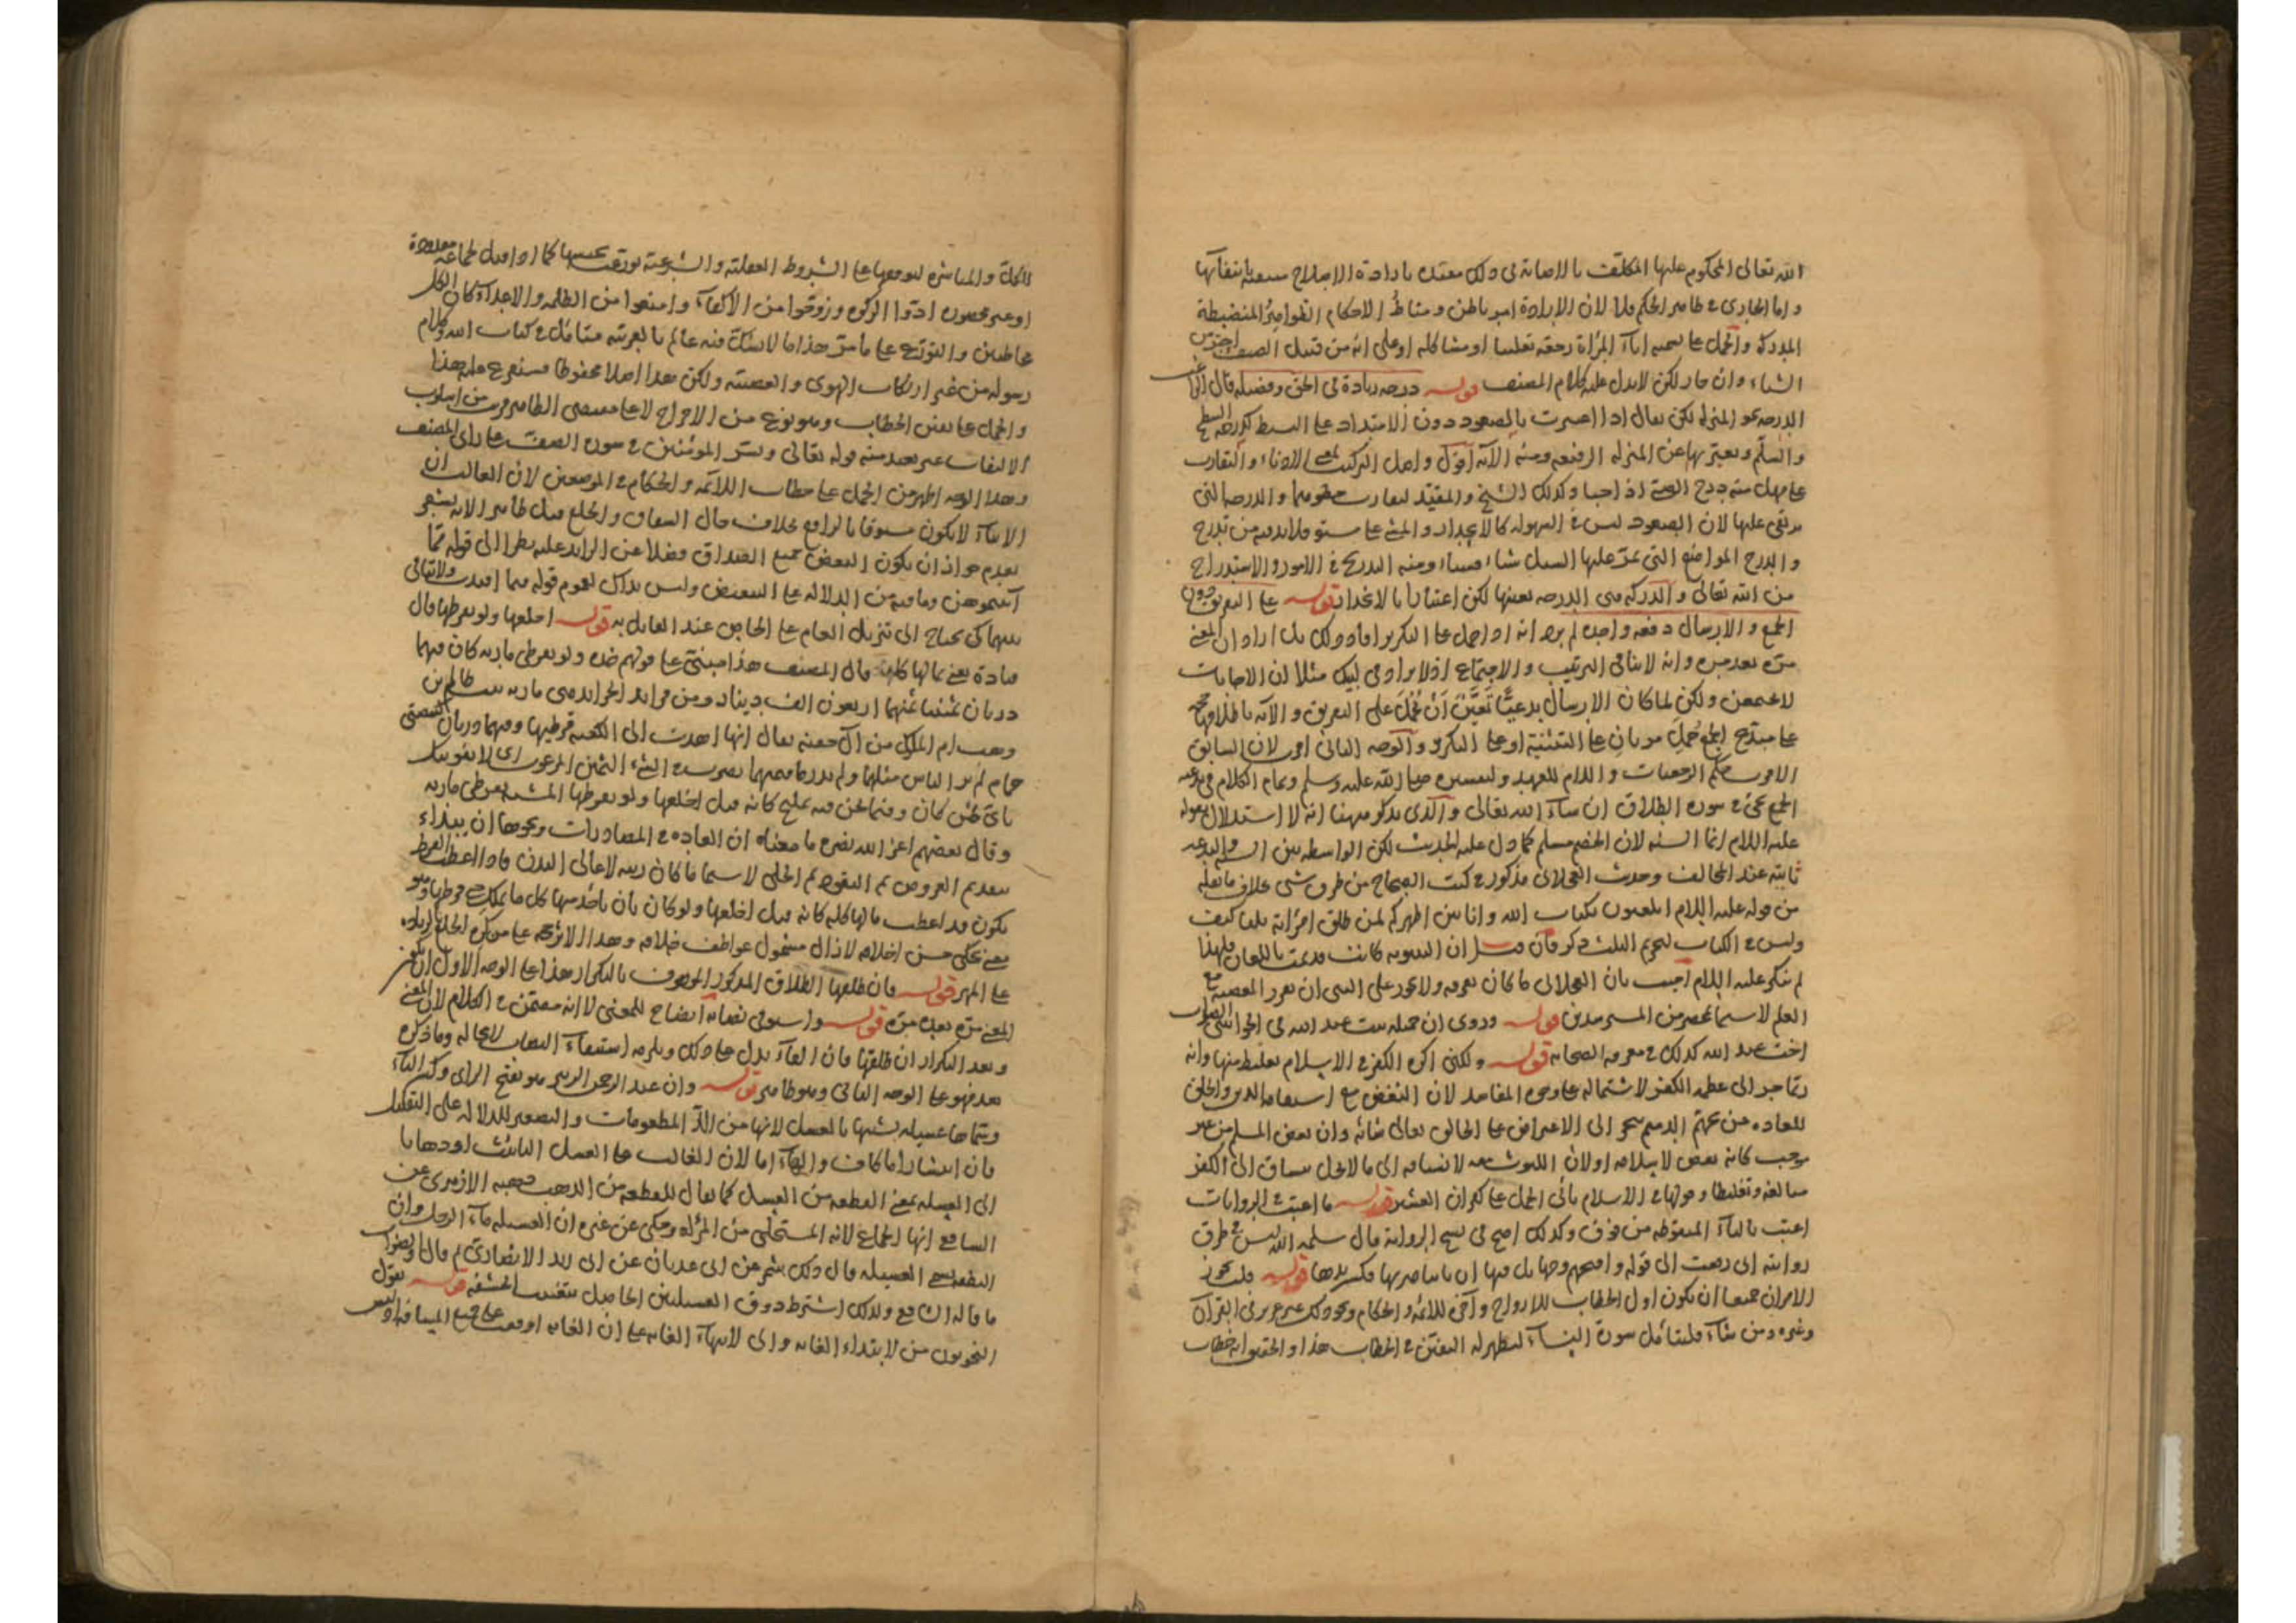 الله تعالى المحكوم عليها المكلف بالاصابة في ذلك مقيد بارادة الاصلاح بانتفائها
واما الجارى في ظاهر الحكم فلا لان الارادة امر باطن ومناط الاحكام الظواهر المنضبطة
المدركة والحمل على اباء المراة رجعة تغليبا او مشاكلة او على انه من قبيل الصيف احر من
الشتاء وان جاز لكن لا يدل عليه كلام المصنف قوله درجة زيادة في الحق وفضيلة قال الراغب
الدرجة نحو المنزلة لكن يقال اذا اعتبرت بالصعود دون الامتداد على البسيط كدرجة السطح
والسلم ويعبر بها عن المنزلة الرفيعة ومنه الآية اقول واصل التركيب لمعنى الادناء والتقارب
على مهل منه درج الصبي اذا حبا وكذلك الشيخ والمقيد لتقارب خطوهما والدرجة التي
يرتقى عليها لان الصعود ليس في السهولة كالانحدار والمشي على مستو فلا بد فيه من تدرج
والدرج المواضع التي يمر عليها السيل شيئا فشيئا ومنه التدريج في الامور والاستدراج
من الله تعالى والدركة هي الدرجة بعينها لكن اعتبارا بالانحدار قوله على التفريق دون
الجمع والارسال دفعة واحدة لم يرد انه اذا حمل على التكرير افاد ذلك بل اراد ان المعنى
مرة بعد مرة وانه لا ينافى الترتيب والاجتماع اذ لا يراد في لبيك مثلا ان الاجابات
لا يجتمعن ولكن لما كان الارسال بدعيا تعين ان يحمل على التفريق والآية باطلاقها حجة
على مبدع الجمع حمل مرتان على التثنية او على التكرير والوجه الثانى اولى لان السابق
الاقرب حكم الرجعيات واللام للعهد ولتفسيره صلى الله عليه وسلم وتمام الكلام في بدعية
الجمع يجئ في سورة الطلاق ان شاء الله تعالى والذى يذكر ههنا انه لا استدلال بقوله
عليه السلام انما السنة لان الخصم مسلم كما دل عليه الحديث لكن الواسطة بين السنة والبدعة
ثابتة عند المخالف وحديث العجلانى مذكور في كتب الصحاح من طرق شتى بخلاف ما نقله
من قوله عليه السلام اتلعبون بكتاب الله وانا بين اظهركم لمن طلق امراته ثلثا كيف
وليس في الكتاب تحريم الثلث ذكر فان قيل ان البينونة كانت قد تمت باللعان فلهذا
لم ينكر عليه السلام اجيب بان العجلانى ما كان يعرفه ولا يجوز على النبى ان يقرر المعصية مع
العلم لا سيما بمحضر من المسترشدين قوله وروى ان جميلة بنت عبد الله في الحواشى الصواب
اخت عبد الله كذلك في معرفة الصحابة قوله ولكنى اكره الكفر في الاسلام تغليظ منها وانه
ربما جر الى عظمة الكفر لاشتماله على وجوه المفاسد لان التبغض مع
للعادة من تحتم الدميم ينجر الى الاعتراض على الخالق تعالى شانه وان بغض المسلم من غير
موجب كانه بغض لاسلامه اولان لانسياقه الى ما لا يحل ينساق الى الكفر
مبالغة وتغليظا وقولها في الاسلام يأبى الحمل على كفران العشير قوله ما اعتب في الروايات
اعتب بالتاء المنقوطة من فوق وكذلك اصح في نسخ الرواية قال سلمه الله ليس في طرق
روايته انى رفعت الى قوله واقبحهم وجها بل فيها ان ثابتا ضربها فكسر يدها قوله قلت يجوز
الامران جميعا ان يكون اول الخطاب للازواج وآخره للائمة والحكام ونحو ذلك غير عزيز في القرآن
وغيره ومن شاء فليتامل سورة النساء ليظهر له التفنن في الخطاب هذا والحق انه خطاب
للكل والمباشرة لتوقعها على الشروط العقلية والشرعية توزعت بحسبها كما اذا قيل لجماعة معدودة
او غير محصورة ادوا الزكوة وزوجوا من الاكفاء وامنعوا من الظلمة والاعداء كان الكل
مخاطبين والتوزيع على ما مر هذا ما لا يشك فيه عالم بالعربية متامل في كتاب الله وكلام
رسوله من غير ارتكاب الهوى والعصبية وليكن هذا اصلا محفوظا يتفرع عليه هذا
والحمل على بعض الخطاب وهو نوع من الاخراج لا على مقتضى الظاهر قريب من اسلوب
الالتفات غير بعيد منه قوله تعالى وبشر المؤمنين في سورة الصف على راى المصنف
وهذا الوجه اظهر من الحمل على خطاب الائمة والحكام في الموضعين لان الغالب ان
الايتاء لا يكون مسبوقا بالترافع بخلاف حال الشقاق والخلع قيل ظاهر الاية يشعر
بعدم جواز ان يكون العوض جميع الصداق فضلا عن الزائد عليه نظرا الى قوله مما
آتيتموهن وما فيه من الدلالة على التبعيض وليس بذاك لعموم قوله فيما افتدت ولا تنافي
بينهما كى يحتاج الى تنزيل العام على الخاص عند القائل به قوله اخلعها ولو بقرطها قال
قتادة يعنى بمالها كله قال المصنف هذا مبنى على قولهم خذه ولو بقرطى مارية كان فيهما
درتان ثمنهما اربعون الف دينار ومن فرائد الخرائد هى مارية بنت ظالم بن
وهب ام الملوك من آل جفنة يقال انها اهدت الى الكعبة قرطيها وفيهما درتان كبيضتى
حمام لم ير الناس مثلهما ولم يدر ما قيمتهما يضرب في الشئ الثمين المرغوب اى لا يفوتنك
باى ثمن كان وفيما نحن فيه تمليح كانه قيل اخلعها ولو بقرطها المشبه بقرطى مارية
وقال بعضهم اعز الله نصره ما معناه ان العادة في المصادرات ونحوها ان يبتداء
بتقديم العروض ثم النقود ثم الحلى لا سيما ما كان زينة لاعالى البدن فاذا اعطت القرط
يكون قد اعطت مالها كله كانه قيل اخلعها ولو كان بان ياخذ منها كل ما تملك حتى قرطها وهو
معنى محكى حسن اخلاه لازال مشمول عواطف خلاقه وهذا الاثر حجة على من كره الخلع بالزيادة
على المهر قوله فان طلقها الطلاق المذكور الموصوف بالتكرار هذا على الوجه الاول ان يكون
المعنى مرة بعد مرة قوله واستوفى نصابه ايضاح للمعنى لا انه مضمن في الكلام لان المعنى
وبعد التكرار ان طلقها فان الفاء يدل على ذلك ويلزمه استيفاء النصاب لا محالة وما ذكره
بعد فهو على الوجه الثانى وهو ظاهر قوله وان عبد الرحمن بن الزبير هو بفتح الزاى وكسر الباء
وسماها عسيلة تشبها بالعسل لانها من الذ المطعومات والتصغير للدلالة على التقليل
فان انتشارا ما كاف والهاء اما لان الغالب على العسل التانيث او ردها
الى العسلة بمعنى القطعة من العسل كما يقال للقطعة من الذهب ذهبة الازهرى عن
الشافعى انها الجماع لانه المستحلى من المراة وحكى عن غيره ان العسيلة ماء الرجل وان
النطفة تسمى العسيلة قال ذلك شمر عن ابى عدنان عن ابى زيد الانصارى ثم قال والصواب
ما قاله الشافعى ولذلك اشترط ذوق العسيلتين الحاصل بتغييب الحشفة قوله يقول
النحويون من لابتداء الغاية والى لانتهاء الغاية على ان الغاية اوقعت على جميع المسافة اذ ليس